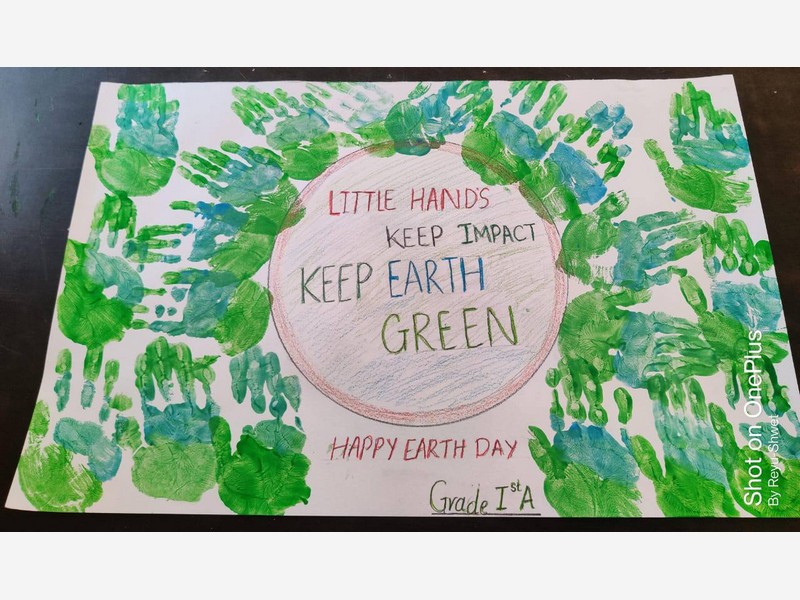 LITTLE HANDS
KEEP IMPACT
KEEP EARTH
GREEN
HAPPY EARTH DAY
Grade Ist A
Shot on OnePlus
By Revu Shwet